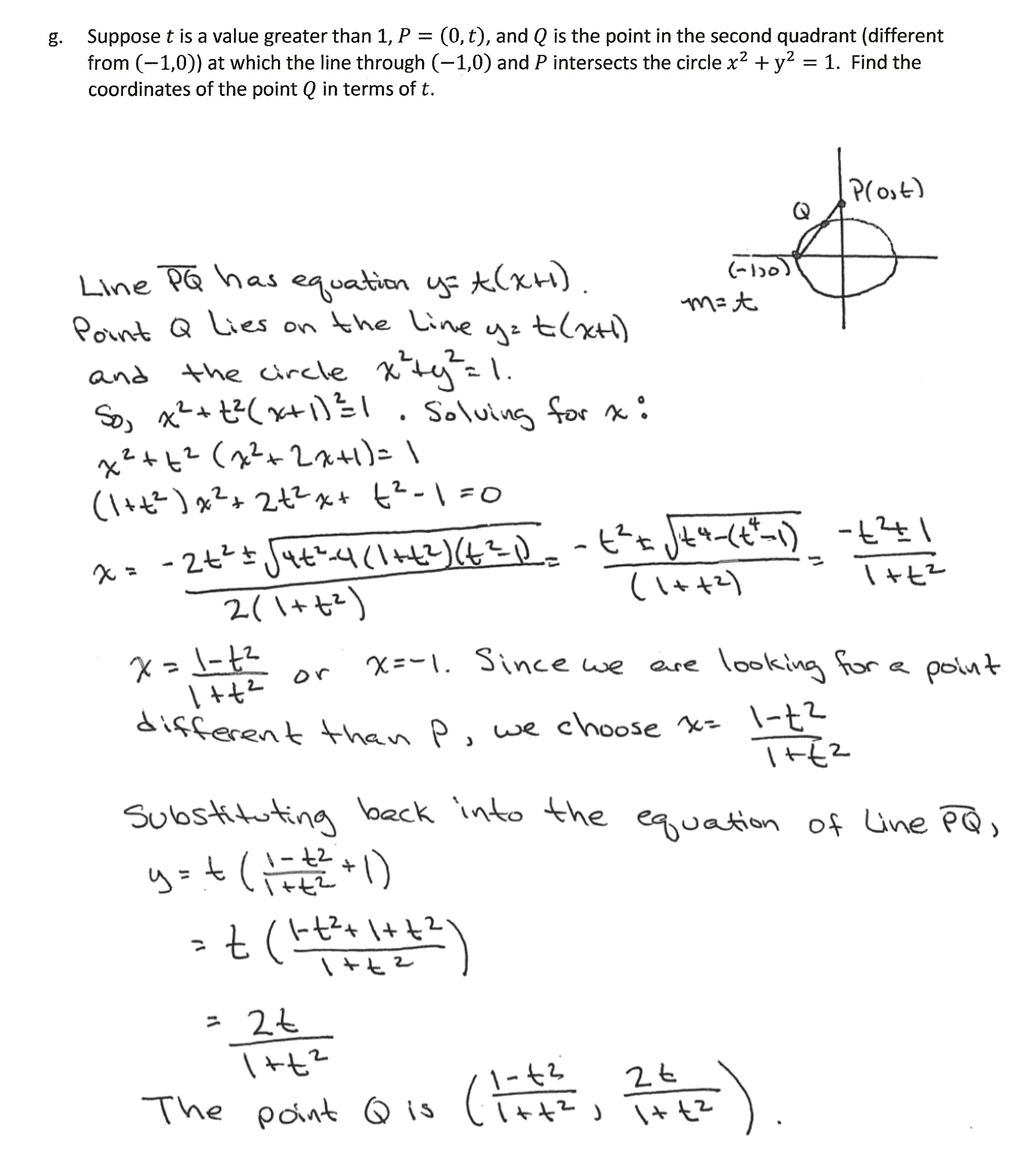 g. Suppose t is a value greater than 1, P = (0, t), and Q is the point in the second quadrant (different
from (−1,0)) at which the line through (−1,0) and P intersects the circle x² + y² = 1. Find the
coordinates of the point Q in terms of t.
P(0,t)
Q
(-1,0)
m=t
Line PQ has equation y= t(x+1).
Point Q lies on the line y= t(x+1)
and the circle x²+y²=1.
So, x²+t²(x+1)²=1. Solving for x:
x²+t²(x²+2x+1)=1
(1+t²)x²+2t²x+t²-1=0
x = (-2t² ± √(4t²-4(1+t²)(t²-1)))/(2(1+t²)) = (-t² ± √(t⁴-(t⁴-1)))/((1+t²)) = (-t²±1)/(1+t²)
x = (1-t²)/(1+t²) or x=-1. Since we are looking for a point
different than P, we choose x= (1-t²)/(1+t²)
Substituting back into the equation of line PQ,
y = t((1-t²)/(1+t²) +1)
= t((1-t²+1+t²)/(1+t²))
= 2t/(1+t²)
The point Q is ((1-t²)/(1+t²), 2t/(1+t²)).